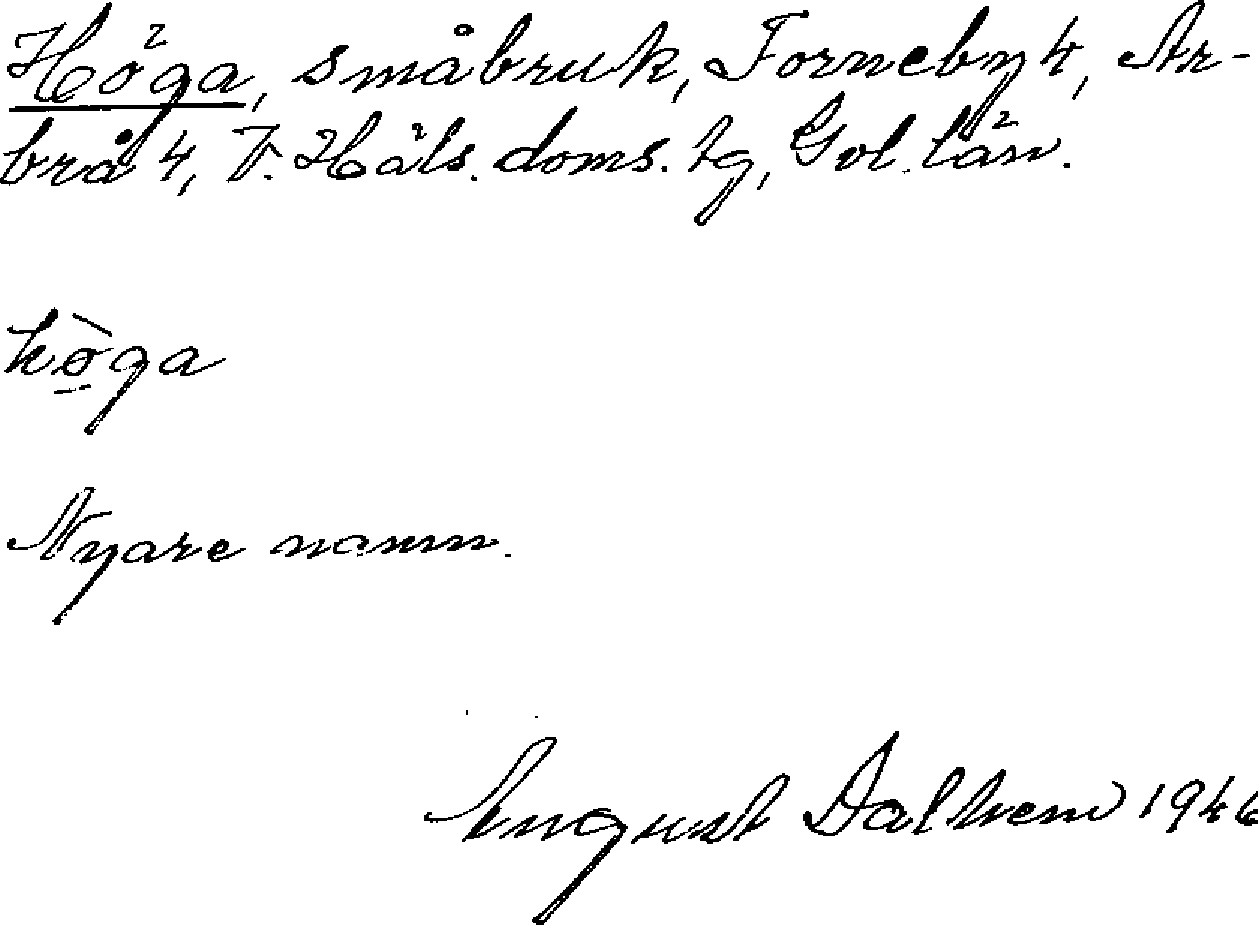 Höga, småbruk, Forneby 4, Ar-
brå 4, V. Häls. doms. tg, Gvl. län.
hò̱ga
Nyare namn.
August Dalhem 1946